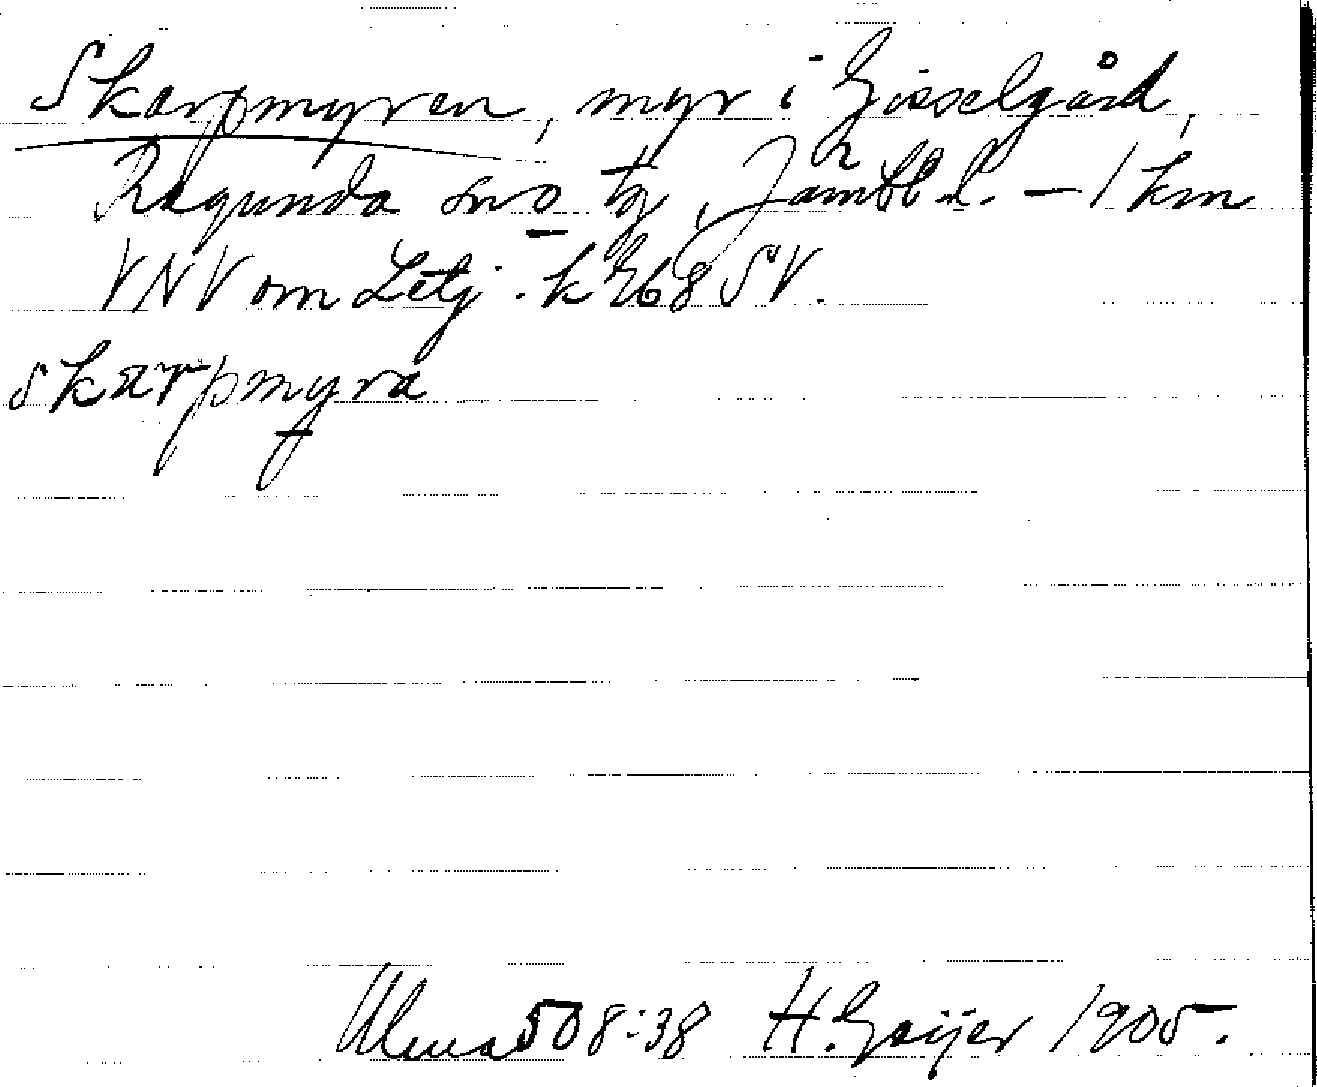 Skarpmyren, myr i Gisselgård,
Ragunda sn o tg, Jämtl l. – 1 km
VNV om Letj. k 268 SV.
skarpmyra
Ulma 508:38 H. Geijer 1905.